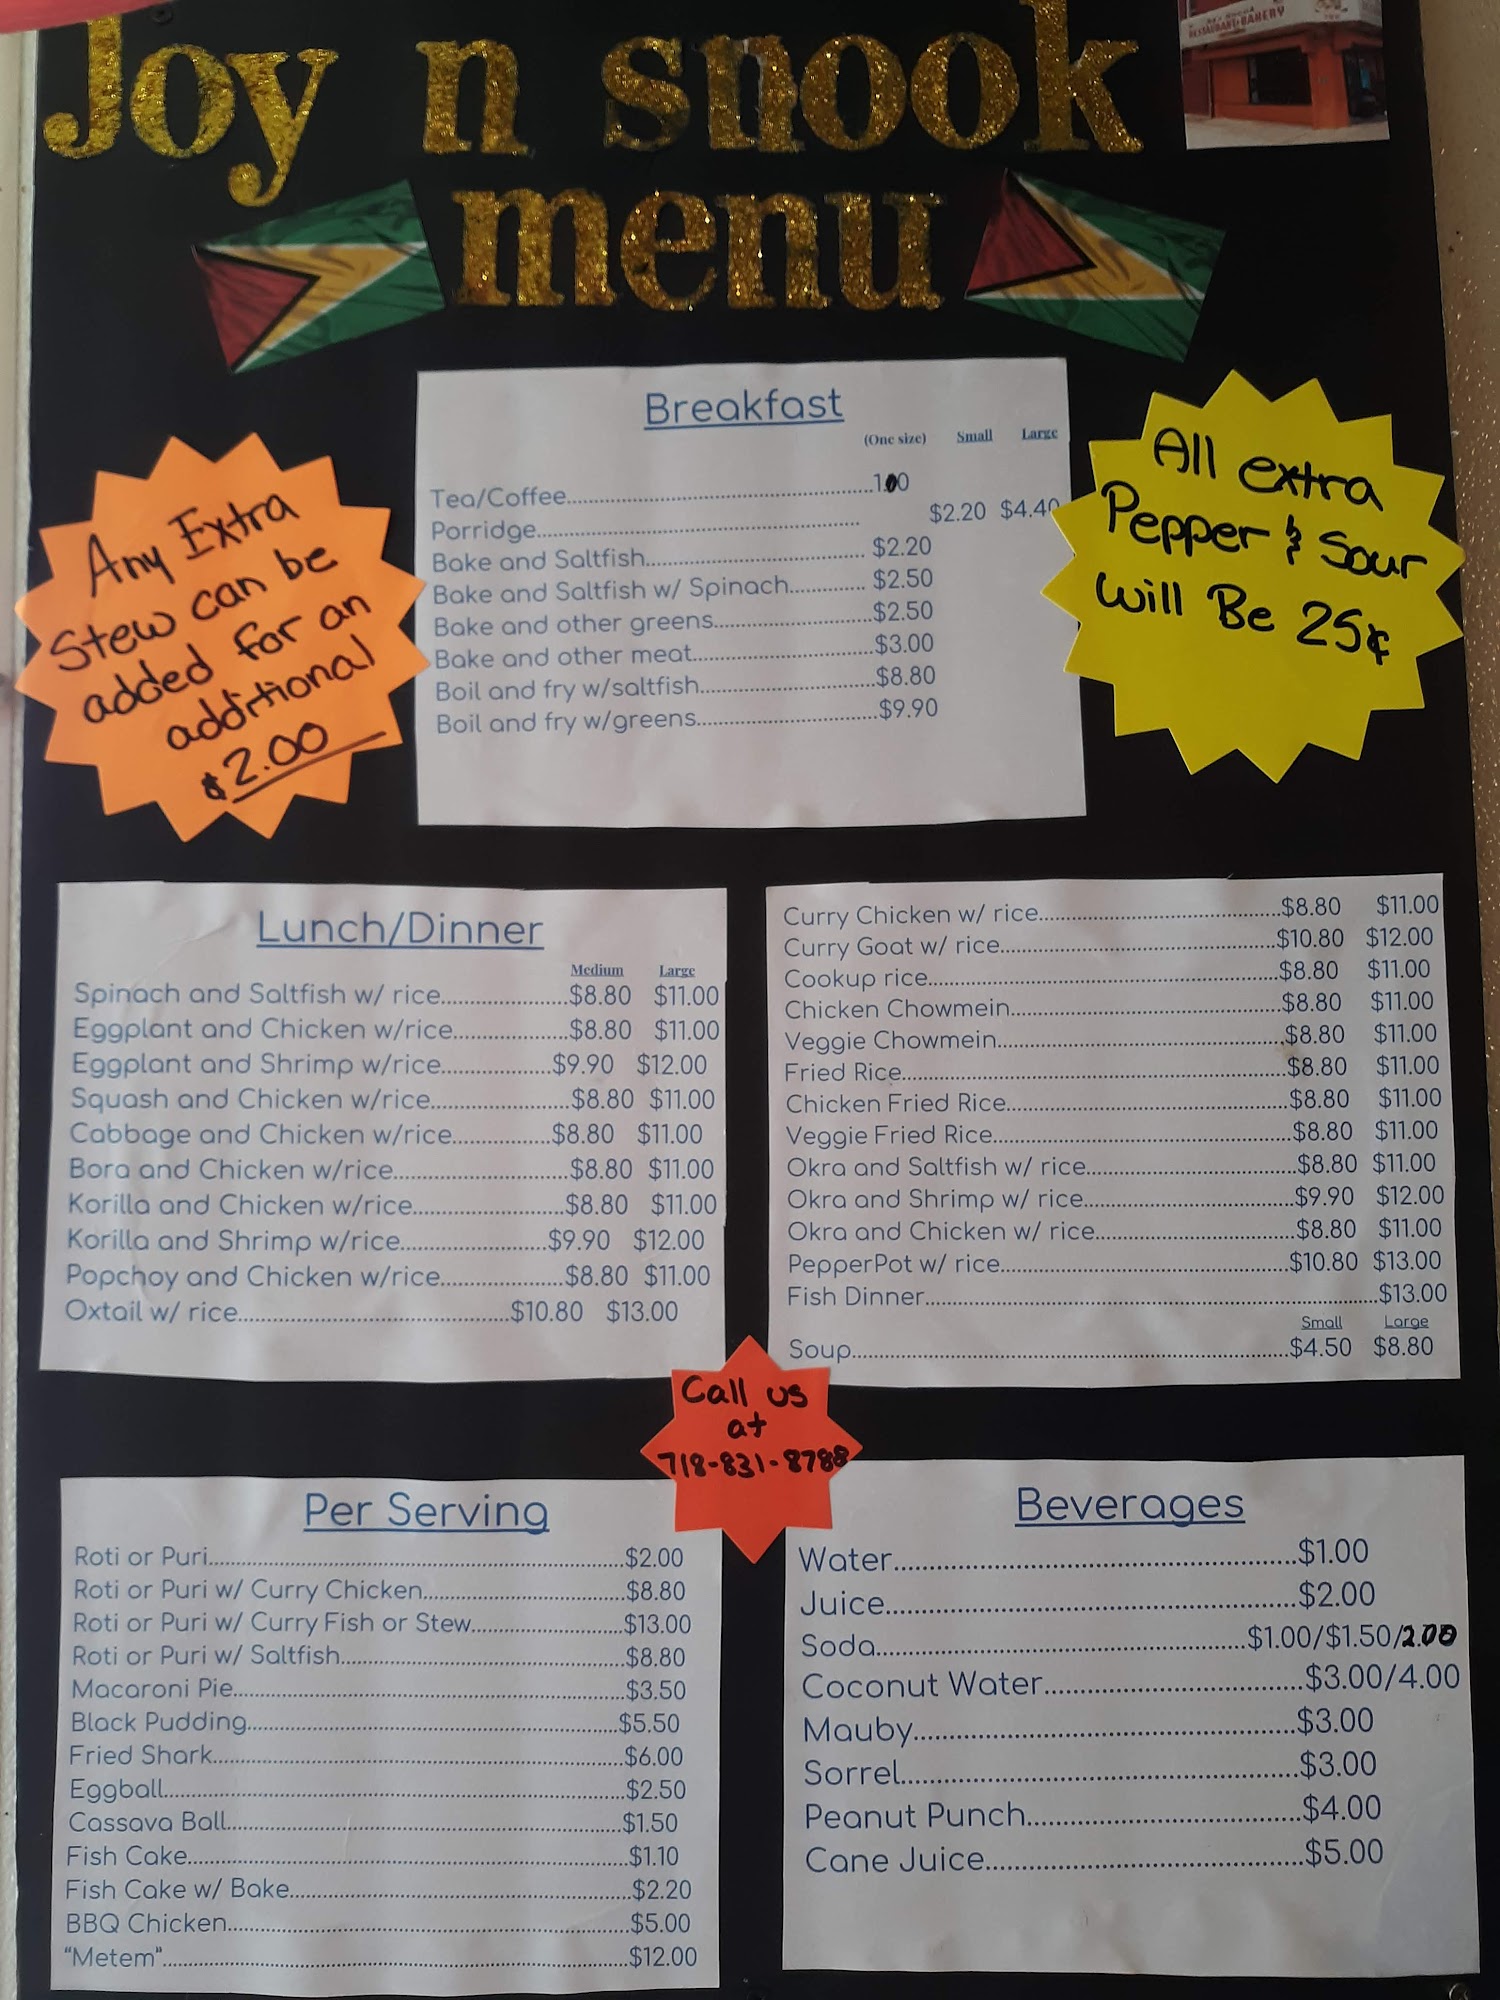 Joy n snook
menu
RESTAURANT & BAKERY
Breakfast
(One size) Small Large
Tea/Coffee 1.00
Porridge $2.20 $4.40
Bake and Saltfish $2.20
Bake and Saltfish w/ Spinach $2.50
Bake and other greens $2.50
Bake and other meat $3.00
Boil and fry w/saltfish $8.80
Boil and fry w/greens $9.90
Any Extra
Stew can be
added for an
additional
$2.00
All extra
Pepper & Sour
Will Be 25¢
Lunch/Dinner
Medium Large
Spinach and Saltfish w/ rice $8.80 $11.00
Eggplant and Chicken w/rice $8.80 $11.00
Eggplant and Shrimp w/rice $9.90 $12.00
Squash and Chicken w/rice $8.80 $11.00
Cabbage and Chicken w/rice $8.80 $11.00
Bora and Chicken w/rice $8.80 $11.00
Korilla and Chicken w/rice $8.80 $11.00
Korilla and Shrimp w/rice $9.90 $12.00
Popchoy and Chicken w/rice $8.80 $11.00
Oxtail w/ rice $10.80 $13.00
Curry Chicken w/ rice $8.80 $11.00
Curry Goat w/ rice $10.80 $12.00
Cookup rice $8.80 $11.00
Chicken Chowmein $8.80 $11.00
Veggie Chowmein $8.80 $11.00
Fried Rice $8.80 $11.00
Chicken Fried Rice $8.80 $11.00
Veggie Fried Rice $8.80 $11.00
Okra and Saltfish w/ rice $8.80 $11.00
Okra and Shrimp w/ rice $9.90 $12.00
Okra and Chicken w/ rice $8.80 $11.00
PepperPot w/ rice $10.80 $13.00
Fish Dinner $13.00
Small Large
Soup $4.50 $8.80
Call us
at
718-831-8788
Per Serving
Roti or Puri $2.00
Roti or Puri w/ Curry Chicken $8.80
Roti or Puri w/ Curry Fish or Stew $13.00
Roti or Puri w/ Saltfish $8.80
Macaroni Pie $3.50
Black Pudding $5.50
Fried Shark $6.00
Eggball $2.50
Cassava Ball $1.50
Fish Cake $1.10
Fish Cake w/ Bake $2.20
BBQ Chicken $5.00
"Metem" $12.00
Beverages
Water $1.00
Juice $2.00
Soda $1.00/$1.50/2.00
Coconut Water $3.00/4.00
Mauby $3.00
Sorrel $3.00
Peanut Punch $4.00
Cane Juice $5.00